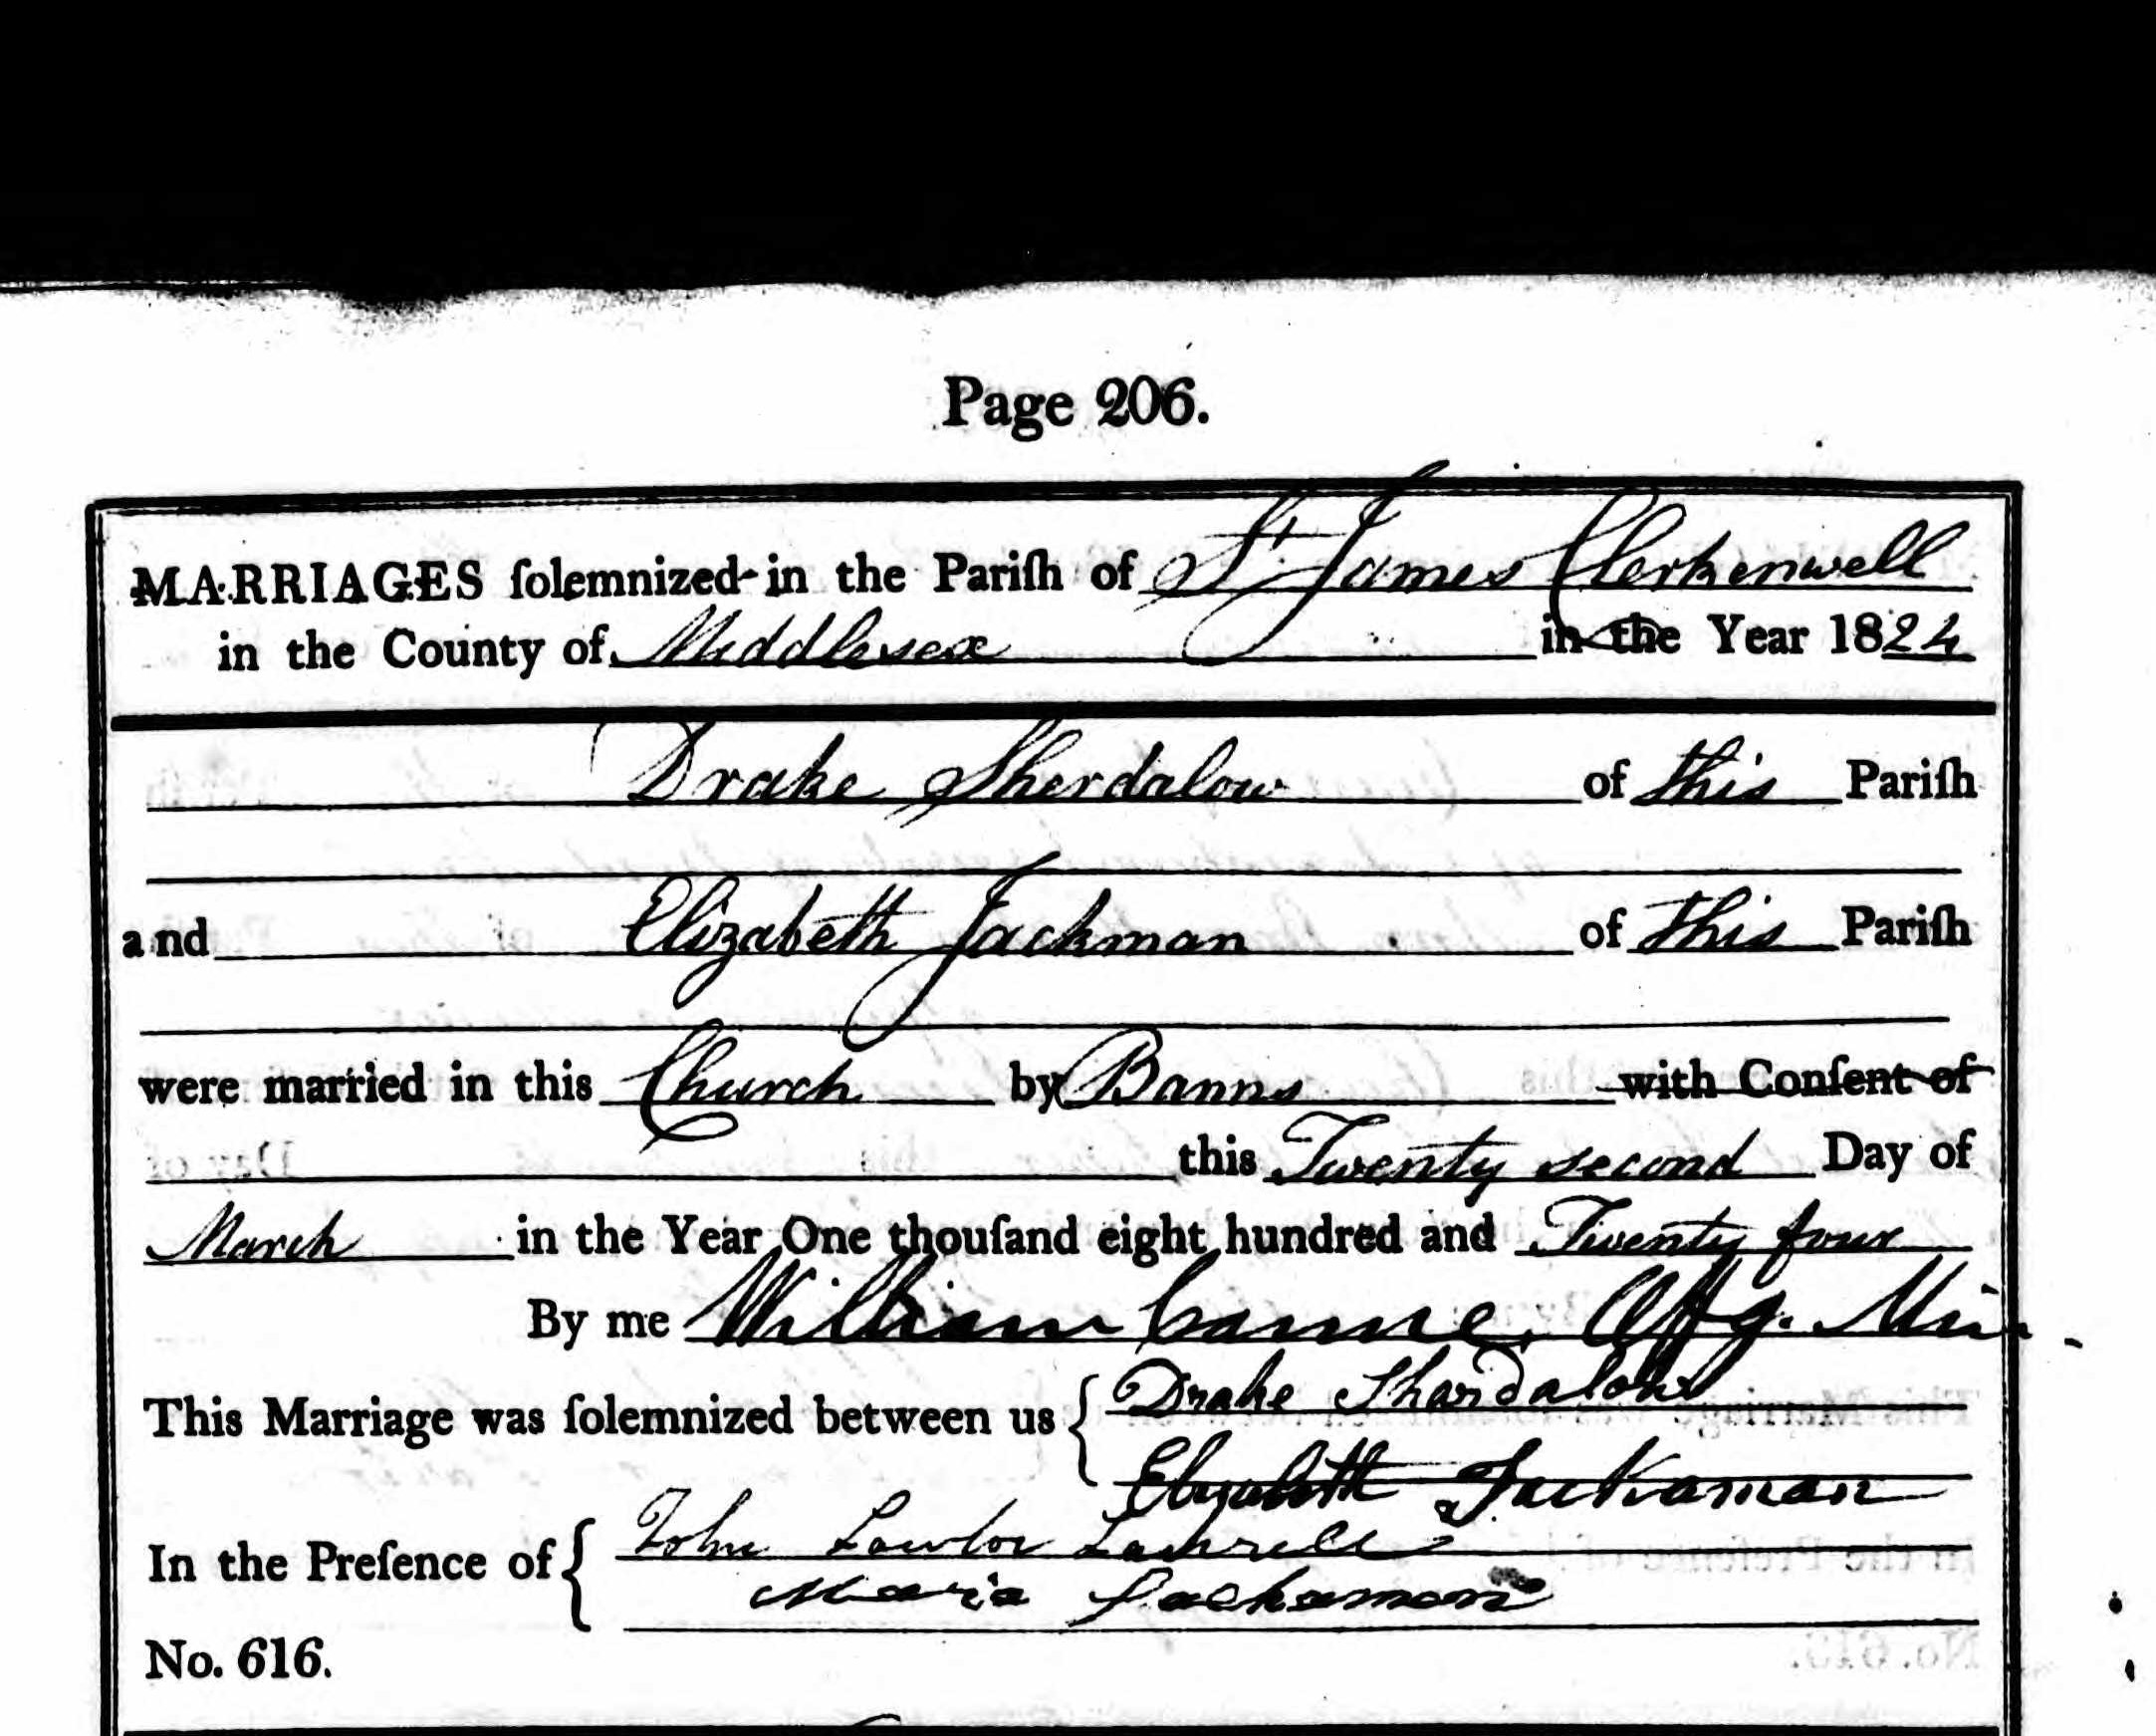 Page 206.
MARRIAGES ſolemnized in the Pariſh of St James Clerkenwell
in the County of Middlesex in the Year 1824
Drake Sherdalow of this Pariſh
and Elizabeth Jackman of this Pariſh
were married in this Church by Banns with Conſent of
this Twenty second Day of
March in the Year One thouſand eight hundred and Twenty four
By me William Canne, Offg. Min.
This Marriage was ſolemnized between us { Drake Shardalow
Elizabeth Jackaman
In the Preſence of { John Lawlor
Maria Jackaman
No. 616.